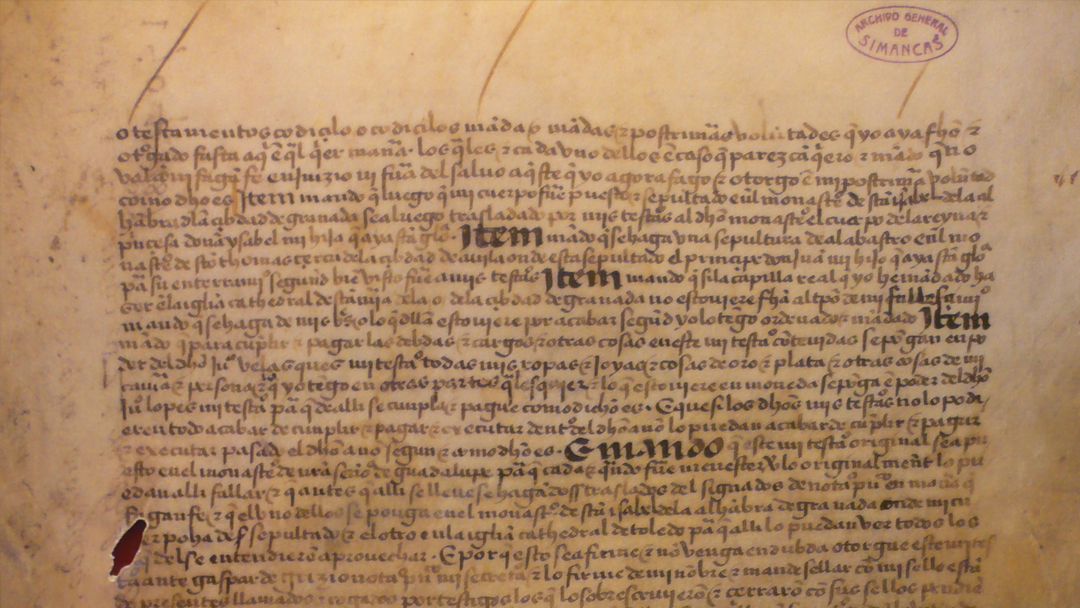 ARCHIVO GENERAL
DE
SIMANCAS
o testamentos codiçilo o codiçilos mãda o mãdas & postrimãs voluntades q̃ yo aya fho &
otorgado fasta aq̃ ẽ q̃l q̃er manãa los q̃les & cada vno dellos ẽ caso q̃ parezcã q̃ero & mãdo q̃ no
valã ni fagã fe en iuizio ni fuãa del saluo aq̃ste q̃ yo agora fago & otorgo ẽ mi postrimãa voluntad
como dho es Item mando q̃ luego q̃ mi cuerpo fuẽ puesto & sepultado en el monasto de sta ysabel de la al
hãbra d la çibdad de granada sea luego trasladado por mis testãos al dho monasto el cuerpo de la reyna &
prinçesa doña ysabel mi hija q̃ aya sta glia Item mãdo q̃ se haga vna sepultura de alabastro en el mo
nasto de sto thomas çerca de la çibdad de auila onde esta sepultado el prinçipe don Juã mi hijo q̃ aya sta glia
pãa su enterramio segund biẽ visto fuẽ a mis testãos Item mando q̃ si la capilla real q̃ yo he mãdado ha
zer ẽ la iglia cathedral de sta mãia de la o de la çibdad de granada no estouiere fha al tpo de mi fallesçimio
mando q̃ se haga de mis bs o lo q̃ dlla estouiere por acabar segũd yo lo tẽgo ordenado & mãdado Item
mãdo q̃ para cũplir & pagar las debdas & cargos & otras cosas en este mi testãto cõtenidas se põgan en po
der del dho Juo velasques mi testão todas mis ropas & joyas & cosas de oro & plata & otras cosas de mi
camãa & persona & lo q̃ yo tẽgo en otras partes q̃lesquier & lo q̃ estouiere en moneda se põga ẽ poder del dho
Juo lopes mi testão pãa q̃ de alli se cunpla & pague como dicho es. E que si los dhos mis testãos no lo podi
eren todo acabar de cunplir & pagar & executar dentro del dho año lo puedan acabar de cũplir & pagar
& executar pasado el dho año segun & como dho es. E mando q̃ este mi testãto original sea pu
esto en el monasto de nrã señora de guadalupe pãa q̃ cada & q̃ndo fuẽ menester v lo originalmente lo pu
edan alli fallar & q̃ antes q̃ alli se lleue se hagã dos traslados del signados de notão puco en manãa q̃
fagan fe & q̃ el vno dellos se ponga en el monasto de sta isabel de la alhãbra de granada onde mi cu
erpo ha de ser sepultado & el otro en la iglia cathedral de toledo pãa q̃ alli lo puedan ver todos los
q̃ del se entendierẽ aprouechar. E por q̃ esto sea firme & no venga en dubda otorgue este mi tes
tãto ante gaspar de grizio notão puco mi secretão & lo firme de mi nõbre & mande sellar cõ mi sello estã
do presentes llamados & rogados por testigos los q̃ lo sobrescriuierõ & çerrarõ cõ sus sellos pendie